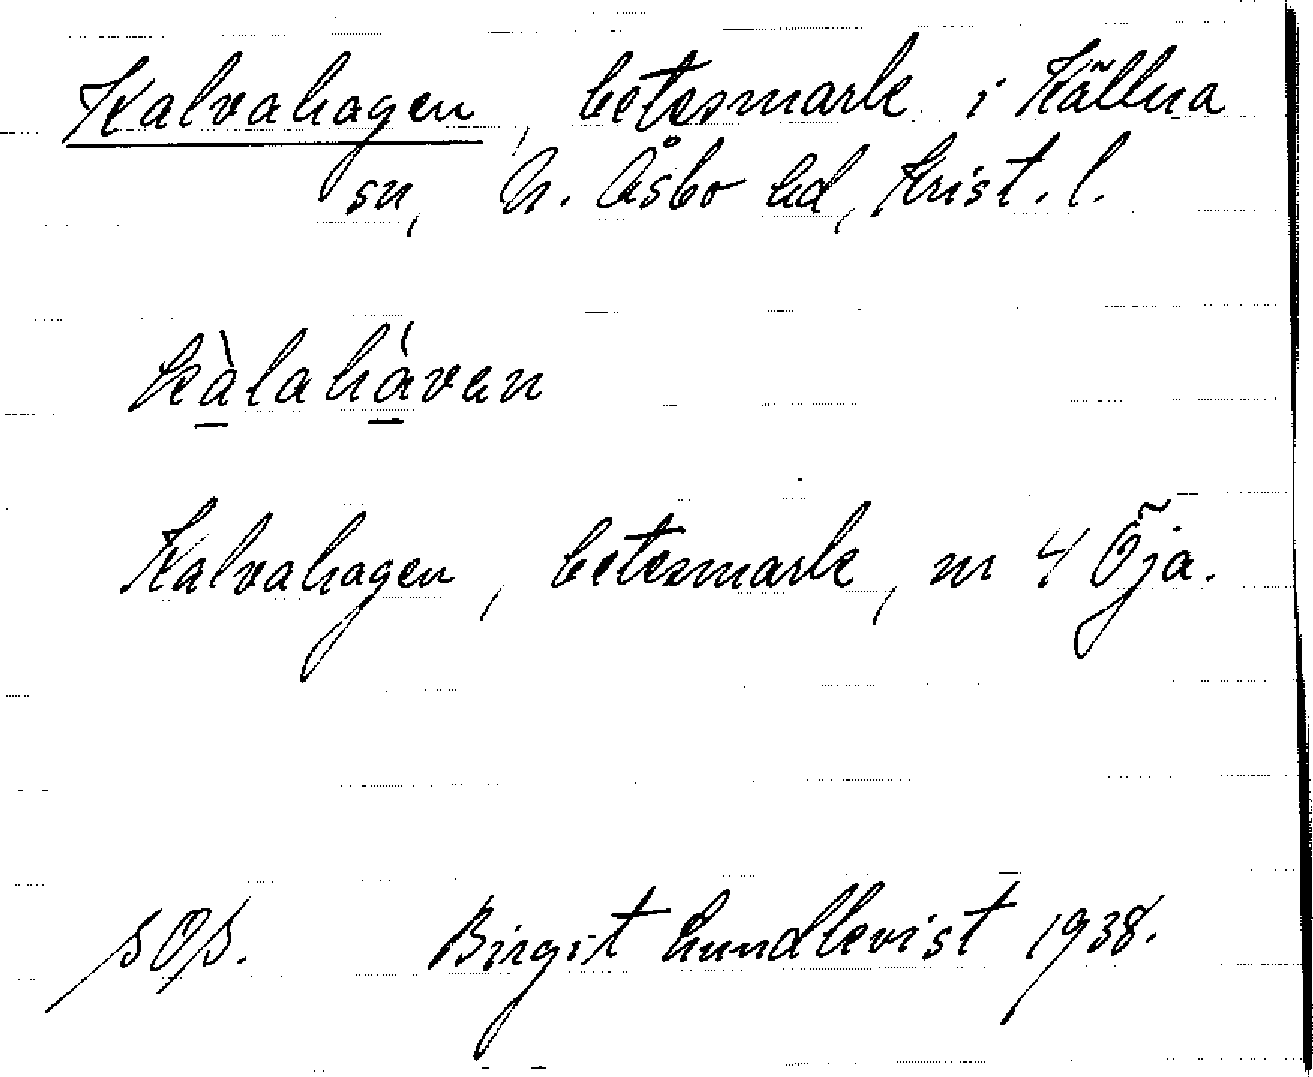 Kalvahagen, betesmark i Källna
sn, N. Åsbo hd, Krist. l.
kàlahávan
Kalvahagen, betesmark, nr 4 Öja.
Birgit Lundkvist 1938.